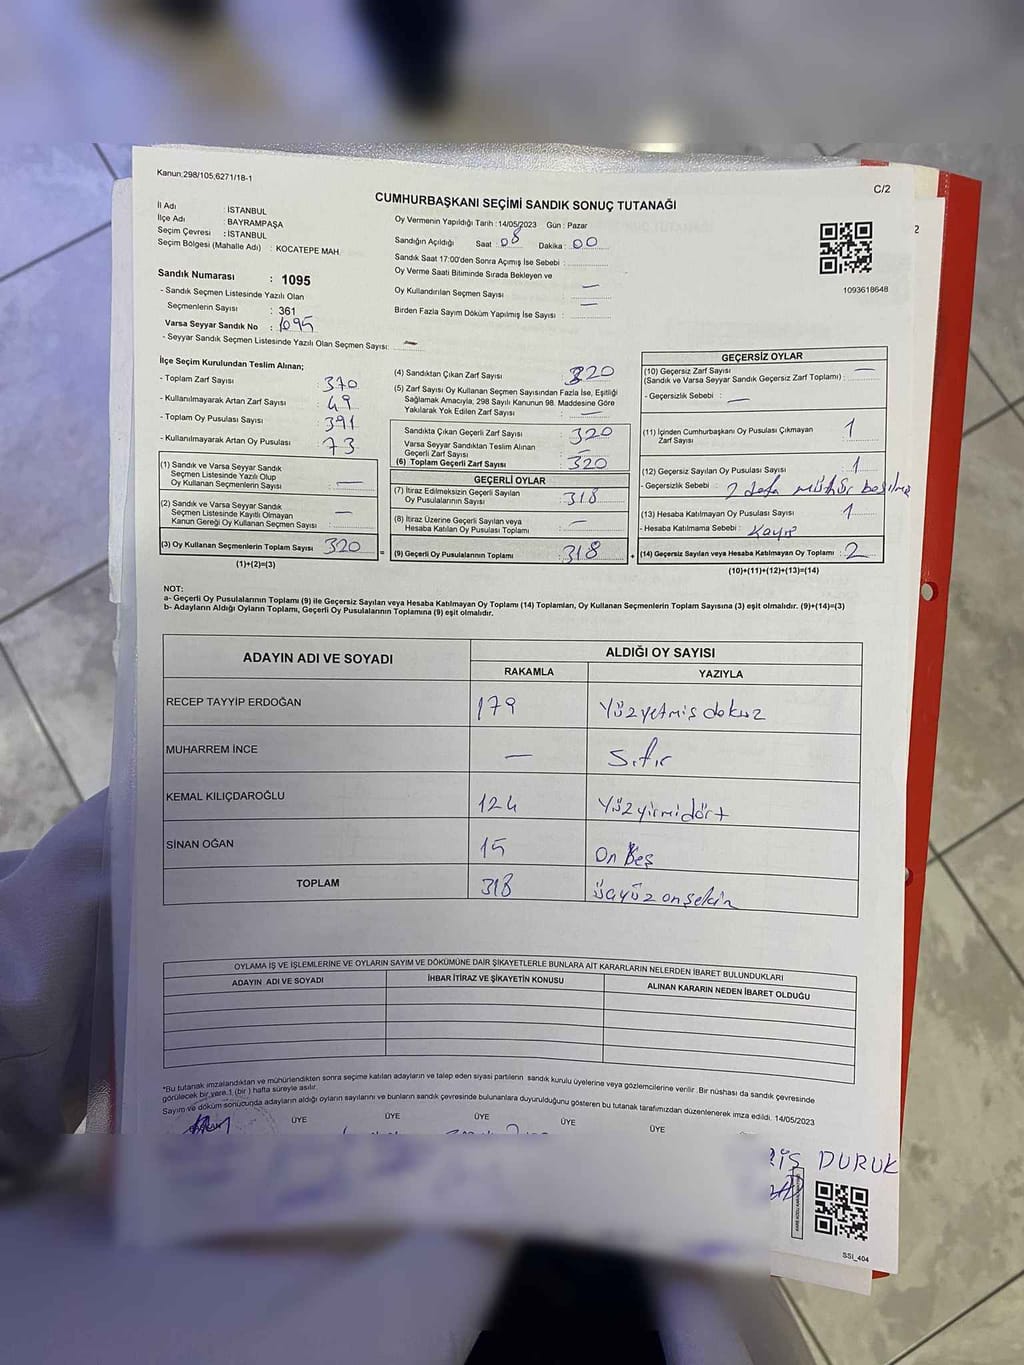 Kanun;298/105;6271/18-1
C/2
CUMHURBAŞKANI SEÇİMİ SANDIK SONUÇ TUTANAĞI
2
İl Adı : İSTANBUL
İlçe Adı : BAYRAMPAŞA
Seçim Çevresi : İSTANBUL
Seçim Bölgesi (Mahalle Adı) : KOCATEPE MAH.
Oy Vermenin Yapıldığı Tarih :14/05/2023 Gün : Pazar
Sandığın Açıldığı Saat : 08 Dakika : 00
Sandık Saat 17:00'den Sonra Açımış İse Sebebi :
Oy Verme Saati Bitiminde Sırada Bekleyen ve
Oy Kullandırılan Seçmen Sayısı : —
Birden Fazla Sayım Döküm Yapılmış İse Sayısı : —
1093618648
Sandık Numarası : 1095
- Sandık Seçmen Listesinde Yazılı Olan
Seçmenlerin Sayısı : 361
Varsa Seyyar Sandık No : 1095
- Seyyar Sandık Seçmen Listesinde Yazılı Olan Seçmen Sayısı: —
İlçe Seçim Kurulundan Teslim Alınan;
- Toplam Zarf Sayısı : 370
- Kullanılmayarak Artan Zarf Sayısı : 49
- Toplam Oy Pusulası Sayısı : 391
- Kullanılmayarak Artan Oy Pusulası : 73
(1) Sandık ve Varsa Seyyar Sandık
Seçmen Listesinde Yazılı Olup
Oy Kullanan Seçmenlerin Sayısı : —
(2) Sandık ve Varsa Seyyar Sandık
Seçmen Listesinde Kayıtlı Olmayan
Kanun Gereği Oy Kullanan Seçmen Sayısı : —
(3) Oy Kullanan Seçmenlerin Toplam Sayısı : 320
(1)+(2)=(3)
=
(4) Sandıktan Çıkan Zarf Sayısı : 320
(5) Zarf Sayısı Oy Kullanan Seçmen Sayısından Fazla İse, Eşitliği
Sağlamak Amacıyla; 298 Sayılı Kanunun 98. Maddesine Göre
Yakılarak Yok Edilen Zarf Sayısı : —
Sandıkta Çıkan Geçerli Zarf Sayısı : 320
Varsa Seyyar Sandıktan Teslim Alınan
Geçerli Zarf Sayısı : —
(6) Toplam Geçerli Zarf Sayısı : 320
GEÇERLİ OYLAR
(7) İtiraz Edilmeksizin Geçerli Sayılan
Oy Pusulalarının Sayısı : 318
(8) İtiraz Üzerine Geçerli Sayılan veya
Hesaba Katılan Oy Pusulası Toplamı : —
(9) Geçerli Oy Pusulalarının Toplamı : 318
+
GEÇERSİZ OYLAR
(10) Geçersiz Zarf Sayısı
(Sandık ve Varsa Seyyar Sandık Geçersiz Zarf Toplamı) : —
- Geçersizlik Sebebi : —
(11) İçinden Cumhurbaşkanı Oy Pusulası Çıkmayan
Zarf Sayısı : 1
(12) Geçersiz Sayılan Oy Pusulası Sayısı : 1
- Geçersizlik Sebebi : 2 defa mühür basılmış
(13) Hesaba Katılmayan Oy Pusulası Sayısı : 1
- Hesaba Katılmama Sebebi : Kayıp
(14) Geçersiz Sayılan veya Hesaba Katılmayan Oy Toplamı : 2
(10)+(11)+(12)+(13)=(14)
NOT:
a- Geçerli Oy Pusulalarının Toplamı (9) ile Geçersiz Sayılan veya Hesaba Katılmayan Oy Toplamı (14) Toplamları, Oy Kullanan Seçmenlerin Toplam Sayısına (3) eşit olmalıdır. (9)+(14)=(3)
b- Adayların Aldığı Oyların Toplamı, Geçerli Oy Pusulalarının Toplamına (9) eşit olmalıdır.
ADAYIN ADI VE SOYADI ALDIĞI OY SAYISI
RAKAMLA YAZIYLA
RECEP TAYYİP ERDOĞAN 179 Yüzyetmiş dokuz
MUHARREM İNCE — Sıfır
KEMAL KILIÇDAROĞLU 124 Yüzyirmidört
SİNAN OĞAN 15 On Beş
TOPLAM 318 üçyüz onsekiz
OYLAMA İŞ VE İŞLEMLERİNE VE OYLARIN SAYIM VE DÖKÜMÜNE DAİR ŞİKAYETLERLE BUNLARA AİT KARARLARIN NELERDEN İBARET BULUNDUKLARI
ADAYIN ADI VE SOYADI İHBAR İTİRAZ VE ŞİKAYETİN KONUSU ALINAN KARARIN NEDEN İBARET OLDUĞU
*Bu tutanak imzalandıktan ve mühürlendikten sonra seçime katılan adayların ve talep eden siyasi partilerin sandık kurulu üyelerine veya gözlemcilerine verilir. Bir nüshası da sandık çevresinde
görülecek bir yere 1 (bir) hafta süreyle asılır.
Sayım ve döküm sonucunda adayların aldığı oyların sayılarını ve bunların sandık çevresinde bulunanlara duyurulduğunu gösteren bu tutanak tarafımızdan düzenlenerek imza edildi. 14/05/2023
ÜYE ÜYE ÜYE ÜYE ÜYE
DURUK
SSI_404